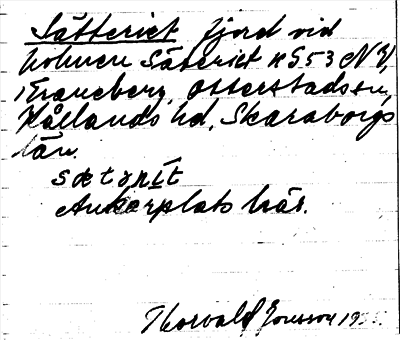 Sätteriet fjord vid
holmen Säteriet NS53 NV,
Traneberg, Otterstads sn,
Kållands hd, Skaraborgs
län.
sætəri̱t
Ankarplats här.
Thorvald Jonsson 19